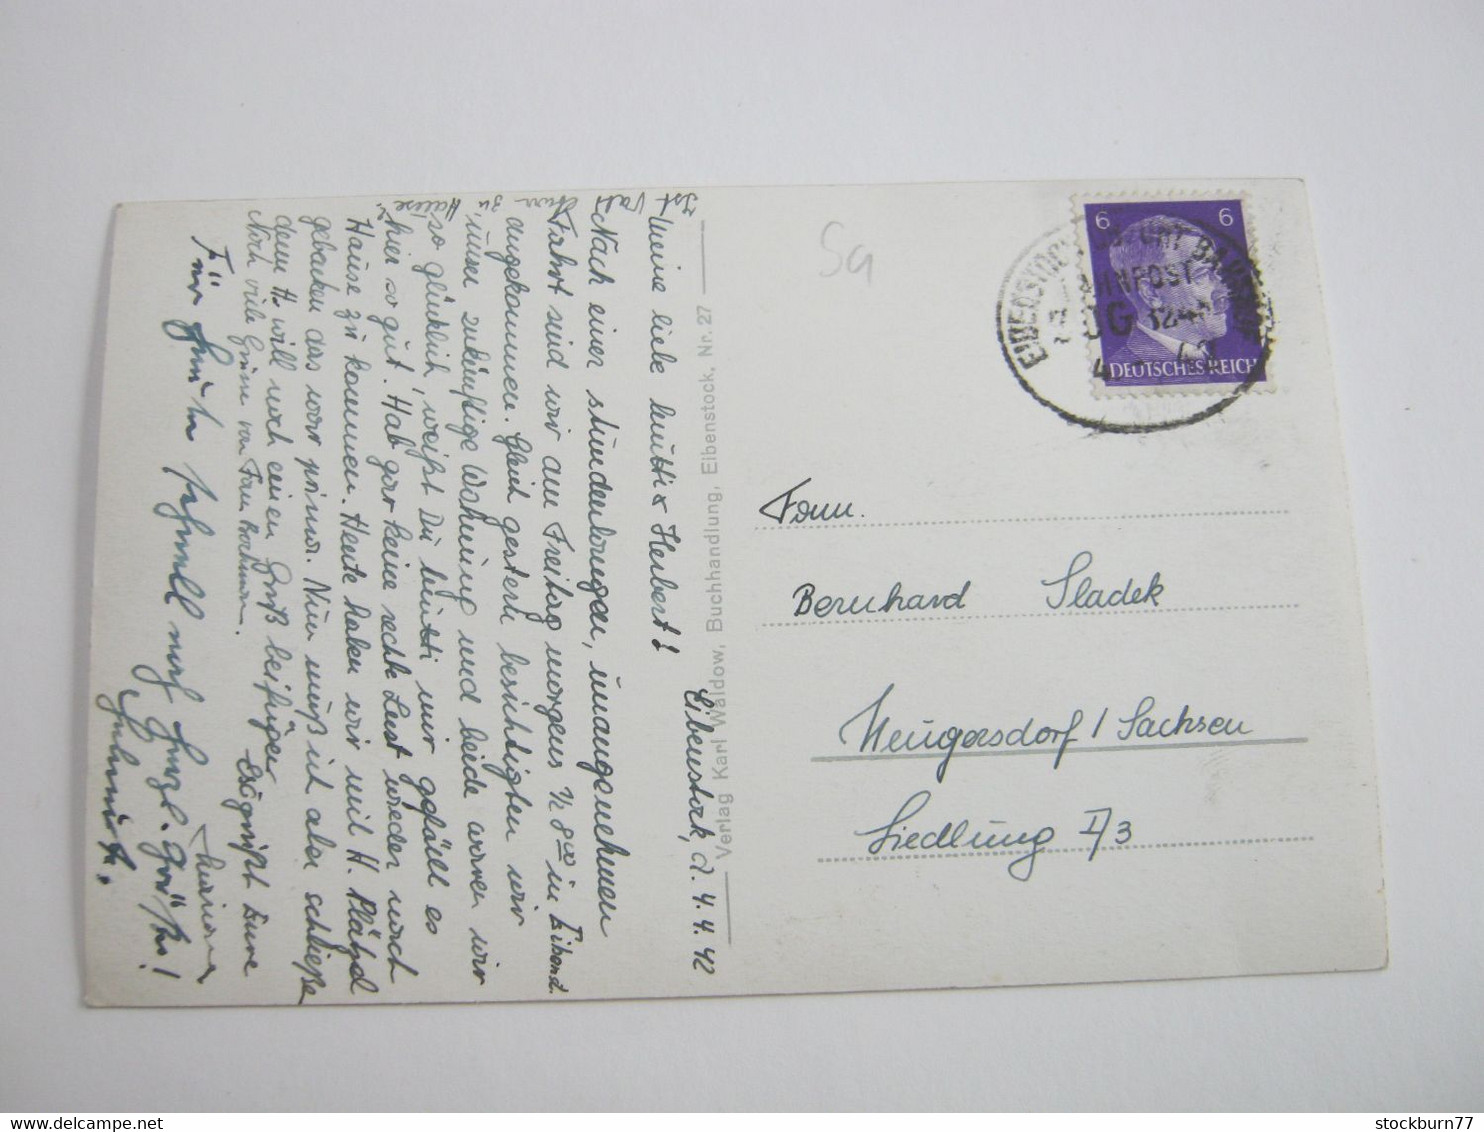 Eibenstock, d. 4.4.42
Meine liebe Mutti & Herbert!
Nach einer stundenlangen, unangenehmen
Fahrt sind wir am Freitag morgens ½ 8 in Eibenst.
angekommen. Gleich gestern besichtigten wir
unsere zukünftige Wohnung und beide waren wir
so glücklich, weißt Du Mutti mir gefällt es
hier so gut. Hab gar keine rechte Lust wieder nach
Hause zu kommen. Heute haben wir mit H. Plätzel
gebacken das war prima. Nun muß ich aber schließen
denn H. will noch einen Gruß beifügen. Es grüßt Eure
Noch viele Grüße von Frau
Für heute schnell noch herzl. Grüße!
Helmut.
Ist Vati
zu
Hause?
Verlag Karl Waldow, Buchhandlung, Eibenstock, Nr. 27
Sa
6 6
DEUTSCHES REICH
EIBENSTOCK
BAHNPOST
ZUG
Fam.
Bernhard Sladek
Neugersdorf / Sachsen
Siedlung I/3
stockburn77
delcampe.net